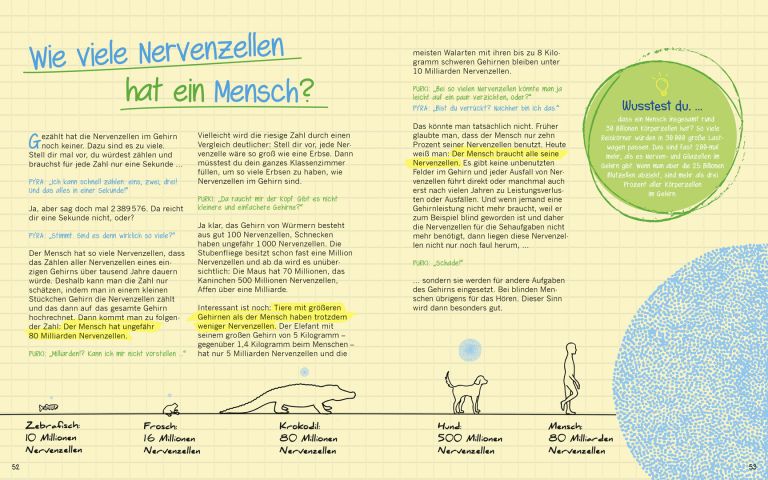 Wie viele Nervenzellen
hat ein Mensch?
Gezählt hat die Nervenzellen im Gehirn
noch keiner. Dazu sind es zu viele.
Stell dir mal vor, du würdest zählen und
brauchst für jede Zahl nur eine Sekunde ...
PYRA: „Ich kann schnell zählen: eins, zwei, drei!
Und das alles in einer Sekunde!“
Ja, aber sag doch mal 2 389 576. Da reicht
dir eine Sekunde nicht, oder?
PYRA: „Stimmt. Sind es denn wirklich so viele?“
Der Mensch hat so viele Nervenzellen, dass
das Zählen aller Nervenzellen eines ein-
zigen Gehirns über tausend Jahre dauern
würde. Deshalb kann man die Zahl nur
schätzen, indem man in einem kleinen
Stückchen Gehirn die Nervenzellen zählt
und das dann auf das gesamte Gehirn
hochrechnet. Dann kommt man zu folgen-
der Zahl: Der Mensch hat ungefähr
80 Milliarden Nervenzellen.
PURKI: „Milliarden!? Kann ich mir nicht vorstellen ...“
Vielleicht wird die riesige Zahl durch einen
Vergleich deutlicher: Stell dir vor, jede Ner-
venzelle wäre so groß wie eine Erbse. Dann
müsstest du dein ganzes Klassenzimmer
füllen, um so viele Erbsen zu haben, wie
Nervenzellen im Gehirn sind.
PURKI: „Da raucht mir der Kopf. Gibt es nicht
kleinere und einfachere Gehirne?“
Ja klar, das Gehirn von Würmern besteht
aus gut 100 Nervenzellen, Schnecken
haben ungefähr 1 000 Nervenzellen. Die
Stubenfliege besitzt schon fast eine Million
Nervenzellen und ab da wird es unüber-
sichtlich: Die Maus hat 70 Millionen, das
Kaninchen 500 Millionen Nervenzellen,
Affen über eine Milliarde.
Interessant ist noch: Tiere mit größeren
Gehirnen als der Mensch haben trotzdem
weniger Nervenzellen. Der Elefant mit
seinem großen Gehirn von 5 Kilogramm –
gegenüber 1,4 Kilogramm beim Menschen –
hat nur 5 Milliarden Nervenzellen und die
meisten Walarten mit ihren bis zu 8 Kilo-
gramm schweren Gehirnen bleiben unter
10 Milliarden Nervenzellen.
PURKI: „Bei so vielen Nervenzellen könnte man ja
leicht auf ein paar verzichten, oder?“
PYRA: „Bist du verrückt? Nachher bin ich das.“
Das könnte man tatsächlich nicht. Früher
glaubte man, dass der Mensch nur zehn
Prozent seiner Nervenzellen benutzt. Heute
weiß man: Der Mensch braucht alle seine
Nervenzellen. Es gibt keine unbenutzten
Felder im Gehirn und jeder Ausfall von Ner-
venzellen führt direkt oder manchmal auch
erst nach vielen Jahren zu Leistungsverlus-
ten oder Ausfällen. Und wenn jemand eine
Gehirnleistung nicht mehr braucht, weil er
zum Beispiel blind geworden ist und daher
die Nervenzellen für die Sehaufgaben nicht
mehr benötigt, dann liegen diese Nervenzel-
len nicht nur noch faul herum, ...
PURKI: „Schade!“
... sondern sie werden für andere Aufgaben
des Gehirns eingesetzt. Bei blinden Men-
schen übrigens für das Hören. Dieser Sinn
wird dann besonders gut.
Wusstest du, ...
... dass ein Mensch insgesamt rund
30 Billionen Körperzellen hat? So viele
Reiskörner würden in 30 000 große Last-
wagen passen. Das sind fast 200-mal
mehr, als es Nerven- und Gliazellen im
Gehirn gibt! Wenn man aber die 25 Billionen
Blutzellen abzieht, sind mehr als drei
Prozent aller Körperzellen
im Gehirn.
Zebrafisch:
10 Millionen
Nervenzellen
Frosch:
16 Millionen
Nervenzellen
Krokodil:
80 Millionen
Nervenzellen
Hund:
500 Millionen
Nervenzellen
Mensch:
80 Milliarden
Nervenzellen
52
53